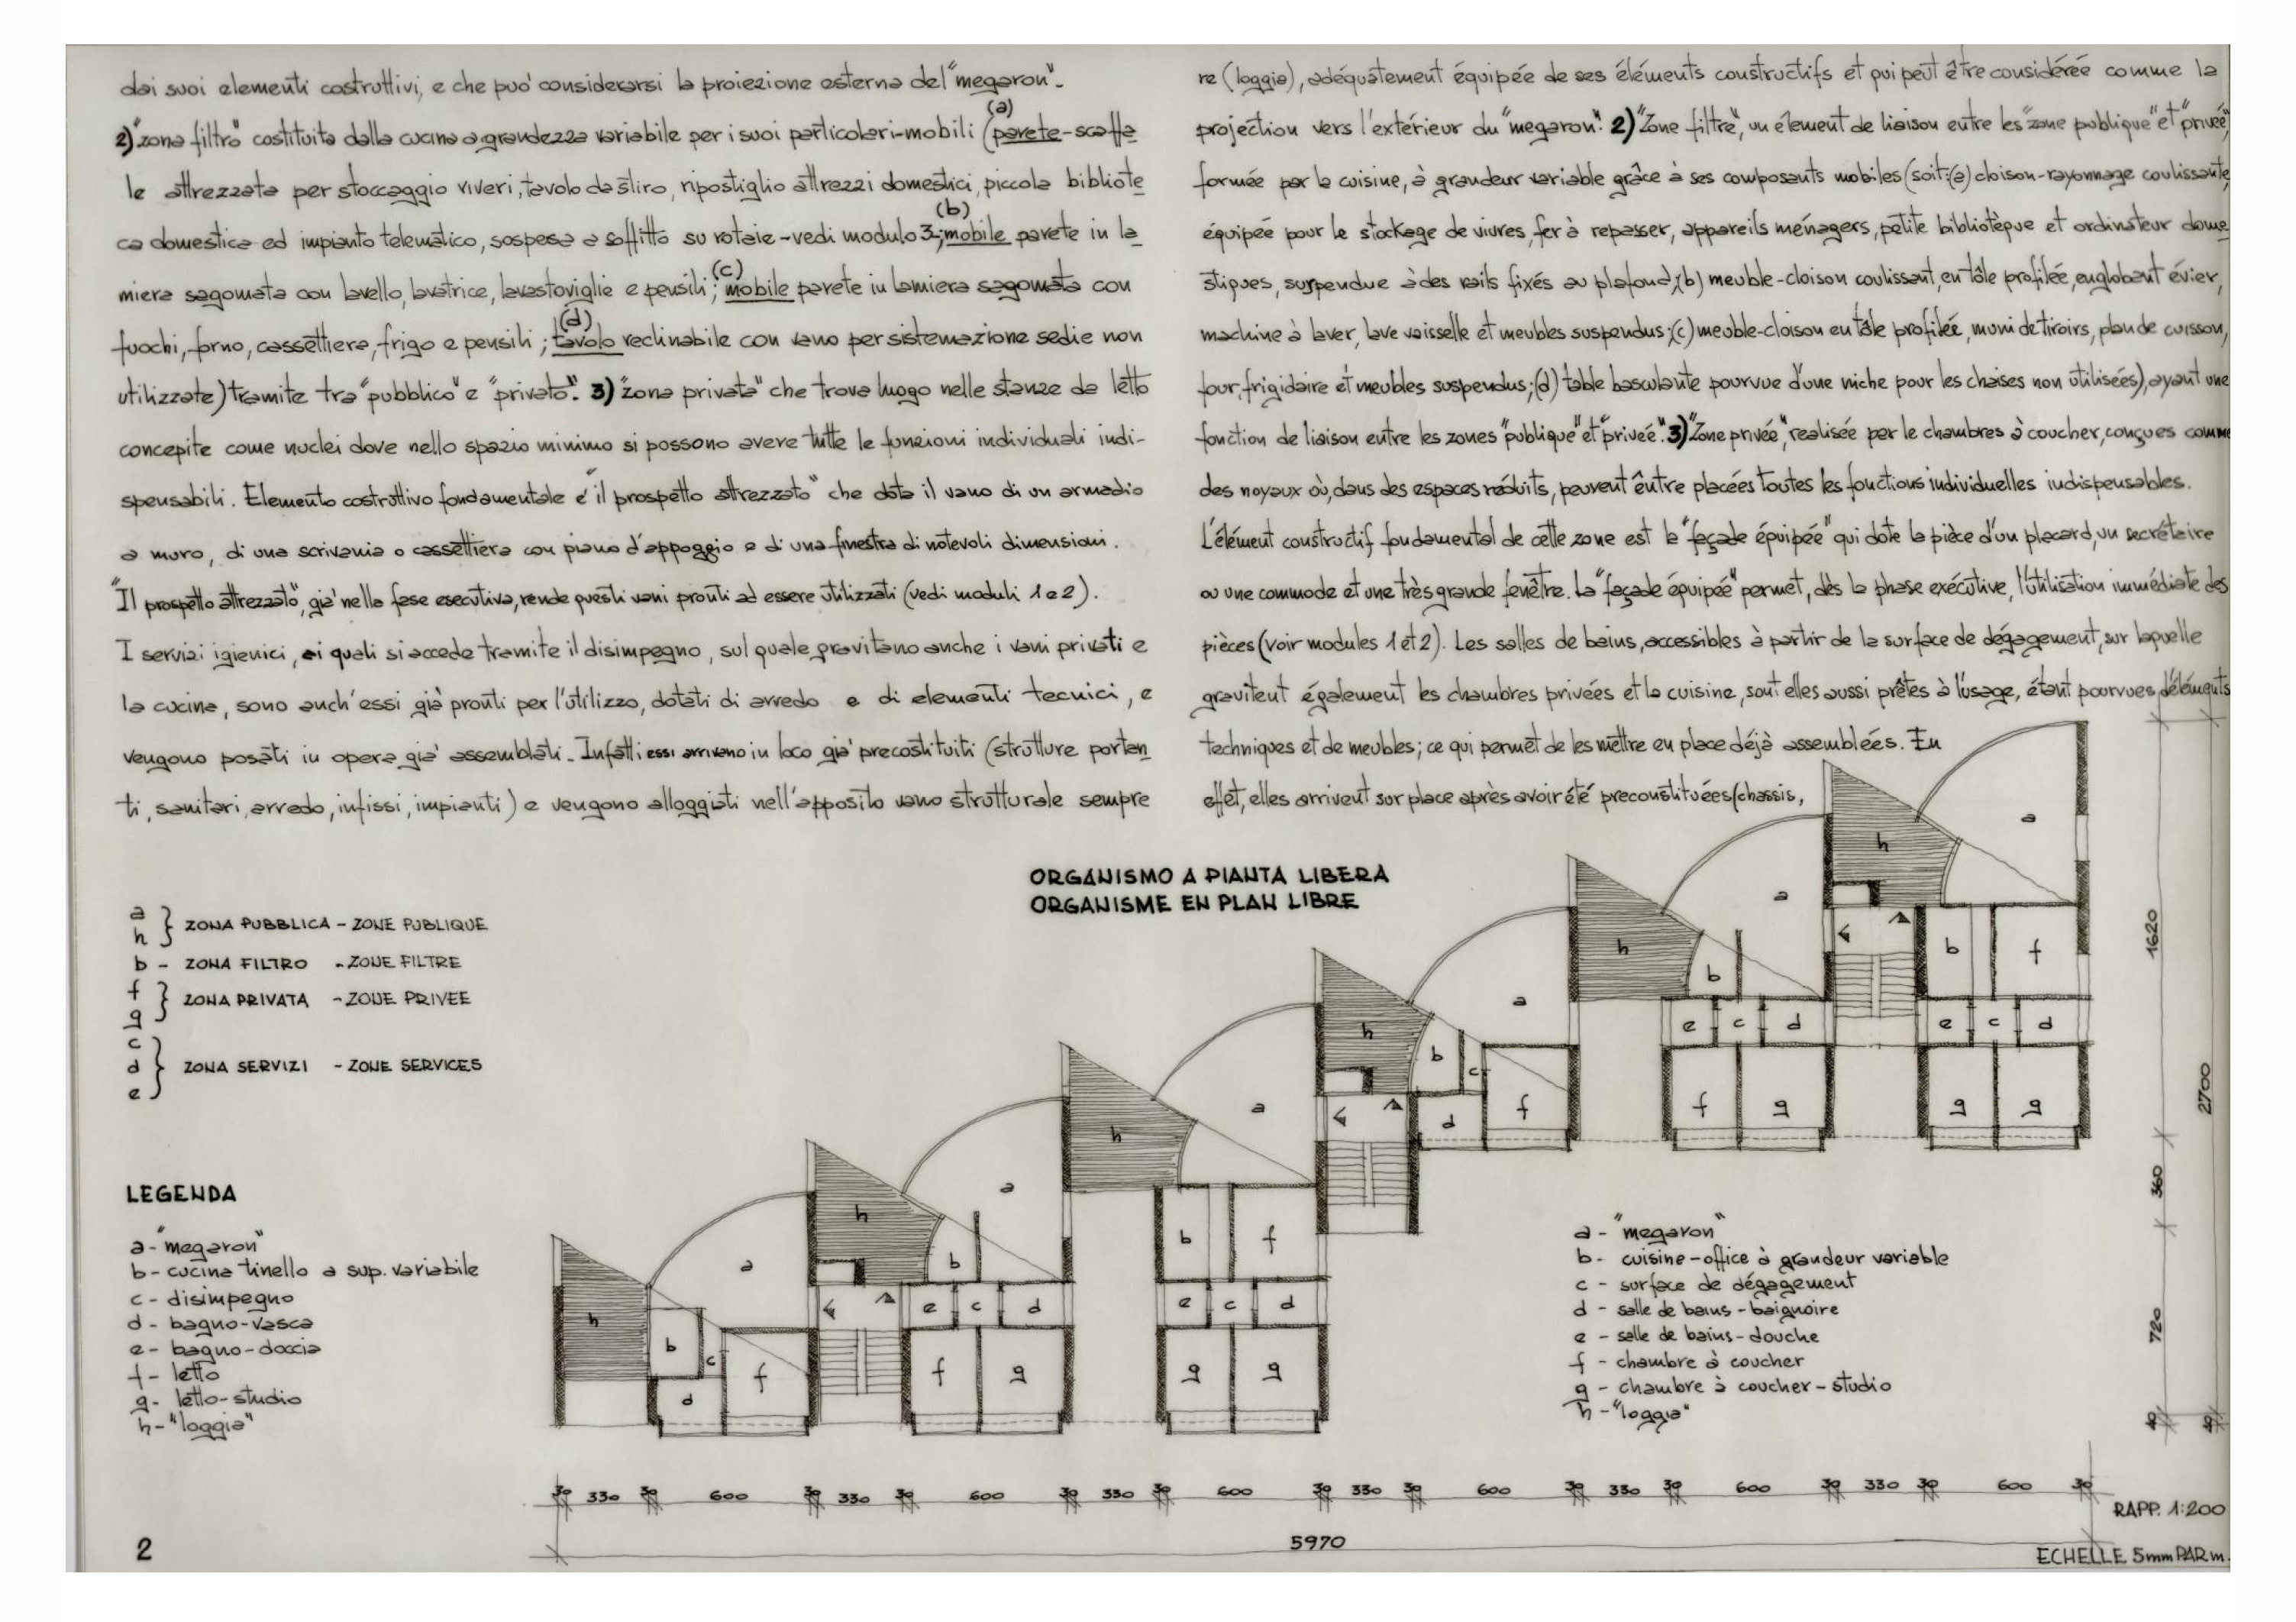 dai suoi elementi costruttivi, e che puo' considerarsi la proiezione esterna del "megaron".
2) "zona filtro" costituita dalla cucina a grandezza variabile per i suoi particolari-mobili (parete-scaffa
(a)
le attrezzata per stoccaggio viveri, tavolo da stiro, ripostiglio attrezzi domestici, piccola bibliote
ca domestica ed impianto telematico, sospesa a soffitto su rotaie-vedi modulo 3; mobile parete in la
(b)
miera sagomata con lavello, lavatrice, lavastoviglie e pensili; mobile parete in lamiera sagomata con
(c)
fuochi, forno, cassettiera, frigo e pensili; tavolo reclinabile con vano per sistemazione sedie non
(d)
utilizzate) tramite tra "pubblico" e "privato". 3) "zona privata" che trova luogo nelle stanze da letto
concepite come nuclei dove nello spazio minimo si possono avere tutte le funzioni individuali indi-
spensabili. Elemento costruttivo fondamentale e' il "prospetto attrezzato" che dota il vano di un armadio
a muro, di una scrivania o cassettiera con piano d'appoggio e di una finestra di notevoli dimensioni.
"Il prospetto attrezzato", gia' nella fase esecutiva, rende questi vani pronti ad essere utilizzati (vedi moduli 1 e 2).
I servizi igienici, ai quali si accede tramite il disimpegno, sul quale gravitano anche i vani privati e
la cucina, sono anch'essi già pronti per l'utilizzo, dotati di arredo e di elementi tecnici, e
vengono posati in opera gia' assemblati. Infatti essi arrivano in loco gia' precostituiti (strutture portan
ti, sanitari, arredo, infissi, impianti) e vengono alloggiati nell'apposito vano strutturale sempre
re (loggia), adéquatement équipée de ses éléments constructifs et qui peut être considérée comme la
projection vers l'extérieur du "megaron". 2) "Zone filtre", un élement de liaison entre les "zone publique" et "privée",
formée par la cuisine, à grandeur variable grâce à ses composants mobiles (soit: (a) cloison-rayonnage coulissante,
équipée pour le stockage de vivres, fer à repasser, appareils ménagers, petite bibliotèque et ordinateur dome
stiques, suspendue à des rails fixés au plafond; (b) meuble-cloison coulissant, en tôle profilée, englobant évier,
machine à laver, lave vaisselle et meubles suspendus; (c) meuble-cloison en tôle profilée, muni de tiroirs, plan de cuisson,
four, frigidaire et meubles suspendus; (d) table basculante pourvue d'une niche pour les chaises non utilisées), ayant une
fonction de liaison entre les zones "publique" et "privée". 3) "Zone privée", realisée par le chambres à coucher, conçues comme
des noyaux où, dans des espaces réduits, peuvent êntre placées toutes les fonctions individuelles indispensables.
L'élément constructif fondamental de cette zone est la "façade équipée" qui dote la pièce d'un placard, un secréteire
ou une commode et une très grande fenêtre. La "façade équipée" permet, dès la phase exécutive, l'utilisation immédiate des
pièces (voir modules 1 et 2). Les salles de bains, accessibles à partir de la surface de dégagement, sur laquelle
gravitent également les chambres privées et la cuisine, sont elles aussi prêtes à l'usage, étant pourvues d'éléments
techniques et de meubles; ce qui permet de les mettre en place déjà assemblées. En
effet, elles arrivent sur place après avoir été preconstituées (chassis,
ORGANISMO A PIANTA LIBERA
ORGANISME EN PLAN LIBRE
a
h } ZONA PUBBLICA - ZONE PUBLIQUE
b - ZONA FILTRO - ZONE FILTRE
f
g } ZONA PRIVATA - ZONE PRIVEE
c
d } ZONA SERVIZI - ZONE SERVICES
e
LEGENDA
a - "megaron"
b - cucina tinello a sup. variabile
c - disimpegno
d - bagno-vasca
e - bagno-doccia
f - letto
g - letto-studio
h - "loggia"
a - "megaron"
b - cuisine-office à grandeur variable
c - surface de dégagement
d - salle de bains - baignoire
e - salle de bains - douche
f - chambre à coucher
g - chambre à coucher - studio
h - "loggia"
h a h a h a h a h a h a
b c d f
b e c d f g
b f e c d g g
b c d f
b e c d f g
b f e c d g g
1620
2700
360
720
30 330 30 600 30 330 30 600 30 330 30 600 30 330 30 600 30 330 30 600 30 330 30 600 30
5970
RAPP. 1:200
ECHELLE 5mm PAR m.
2